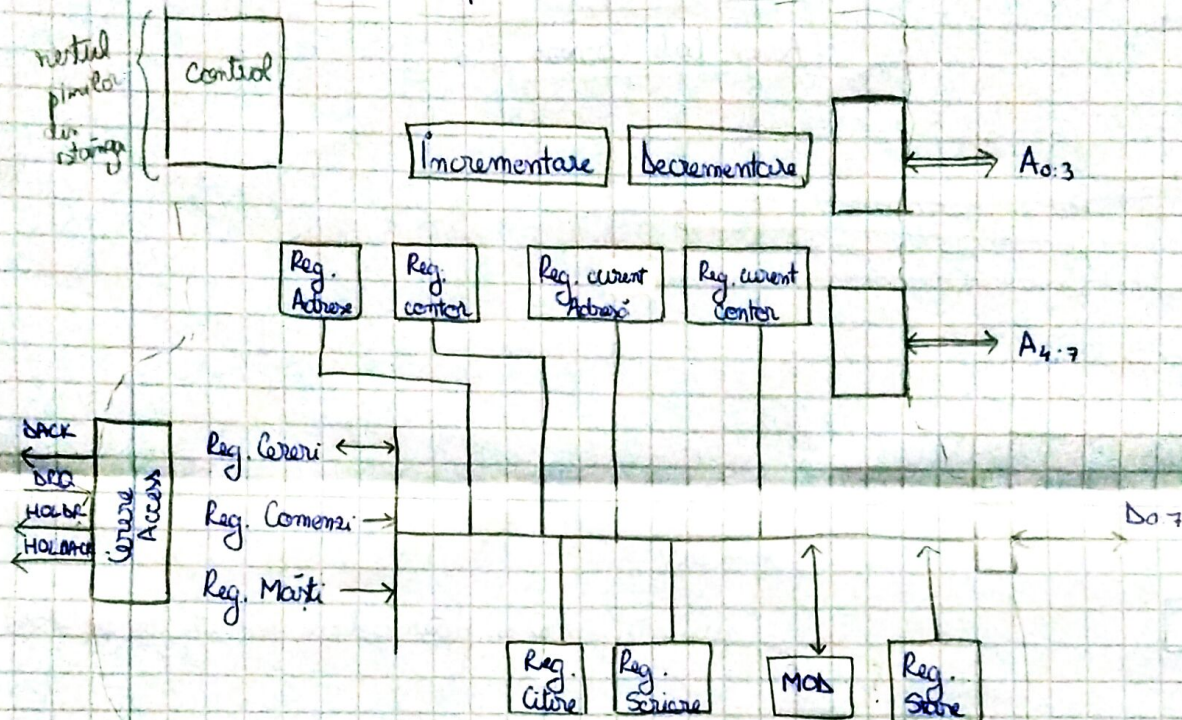 restul
pinilor
din
stânga
Control
Incrementare
Decrementare
A0:3
Reg.
Adrese
Reg.
contor
Reg. curent
Adresă
Reg. curent
contor
A4:7
DACK
DRQ
HOLDR
HOLDACK
Cerere
Access
Reg. Cereri
Reg. Comenzi
Reg. Măști
D0:7
Reg.
Citire
Reg.
Scriere
MOD
Reg.
Stare